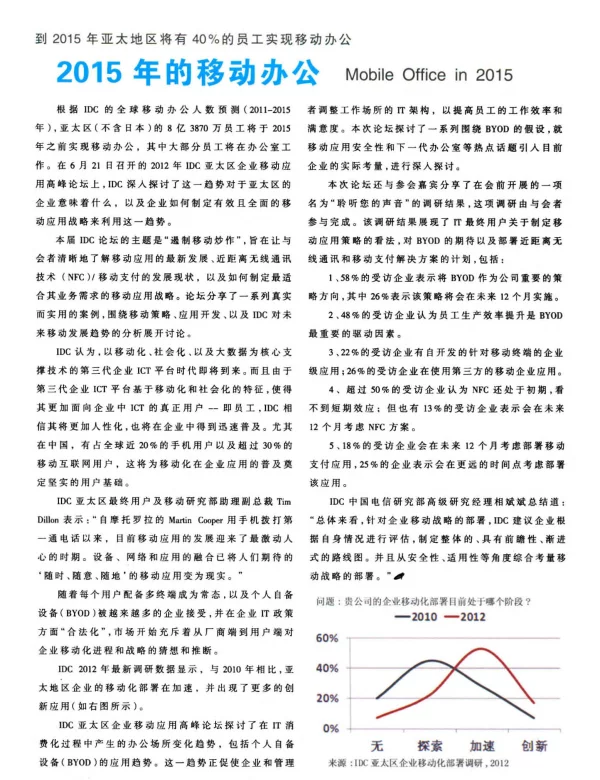 到 2015 年亚太地区将有 40%的员工实现移动办公
2015 年的移动办公 Mobile Office in 2015
根据 IDC 的全球移动办公人数预测 (2011-2015
年), 亚太区 (不含日本) 的 8 亿 3870 万员工将于 2015
年之前实现移动办公, 其中大部分员工将在办公室工
作。在 6 月 21 日召开的 2012 年 IDC 亚太区企业移动应
用高峰论坛上, IDC 深入探讨了这一趋势对于亚太区的
企业意味着什么, 以及企业如何制定有效且全面的移
动应用战略来利用这一趋势。
本届 IDC 论坛的主题是“遏制移动炒作”, 旨在让与
会者清晰地了解移动应用的最新发展、近距离无线通讯
技术 (NFC)/ 移动支付的发展现状, 以及如何制定最适
合其业务需求的移动应用战略。论坛分享了一系列真实
而实用的案例, 围绕移动策略、应用开发、以及 IDC 对未
来移动发展趋势的分析展开讨论。
IDC 认为, 以移动化、社会化、以及大数据为核心支
撑技术的第三代企业 ICT 平台时代即将到来。而且由于
第三代企业 ICT 平台基于移动化和社会化的特征, 使得
其更加面向企业中 ICT 的真正用户 -- 即员工, IDC 相
信其将更加人性化, 也将在企业中得到迅速普及。尤其
在中国, 有占全球近 20%的手机用户以及超过 30%的
移动互联网用户, 这将为移动化在企业应用的普及奠
定坚实的用户基础。
IDC 亚太区最终用户及移动研究部助理副总裁 Tim
Dillon 表示: “自摩托罗拉的 Martin Cooper 用手机拨打第
一通电话以来, 目前移动应用的发展迎来了最激动人
心的时期。设备、网络和应用的融合已将人们期待的
‘随时、随意、随地’的移动应用变为现实。”
随着每个用户配备多终端成为常态, 以及个人自备
设备 (BYOD) 被越来越多的企业接受, 并在企业 IT 政策
方面“合法化”, 市场开始充斥着从厂商端到用户端对
企业移动化进程和战略的猜想和推断。
IDC 2012 年最新调研数据显示, 与 2010 年相比, 亚
太地区企业的移动化部署在加速, 并出现了更多的创
新应用 (如右图所示)。
IDC 亚太区企业移动应用高峰论坛探讨了在 IT 消
费化过程中产生的办公场所变化趋势, 包括个人自备
设备 (BYOD) 的应用趋势。这一趋势正促使企业和管理
者调整工作场所的 IT 架构, 以提高员工的工作效率和
满意度。本次论坛探讨了一系列围绕 BYOD 的假设, 就
移动应用安全性和下一代办公室等热点话题引人目前
企业的实际考量, 进行深入探讨。
本次论坛还与参会嘉宾分享了在会前开展的一项
名为“聆听您的声音”的调研结果, 这项调研由与会者
参与完成。该调研结果展现了 IT 最终用户关于制定移
动应用策略的看法, 对 BYOD 的期待以及部署近距离无
线通讯和移动支付解决方案的计划, 包括:
1、58%的受访企业表示将 BYOD 作为公司重要的策
略方向, 其中 26%表示该策略将会在未来 12 个月实施。
2、48%的受访企业认为员工生产效率提升是 BYOD
最重要的驱动因素。
3、22%的受访企业有自开发的针对移动终端的企业
级应用; 26%的受访企业在使用第三方的移动企业应用。
4、超过 50%的受访企业认为 NFC 还处于初期, 看
不到短期效应; 但也有 13%的受访企业表示会在未来
12 个月考虑 NFC 方案。
5、18%的受访企业会在未来 12 个月考虑部署移动
支付应用, 25%的企业表示会在更远的时间点考虑部署
该应用。
IDC 中国电信研究部高级研究经理相斌斌总结道:
“总体来看, 针对企业移动战略的部署, IDC 建议企业根
据自身情况进行评估, 制定整体的、具有前瞻性、渐进
式的路线图。并且从安全性、适用性等角度综合考量移
动战略的部署。”
问题: 贵公司的企业移动化部署目前处于哪个阶段?
2010 2012
60%
40%
20%
0%
无 探索 加速 创新
来源: IDC 亚太区企业移动化部署调研, 2012